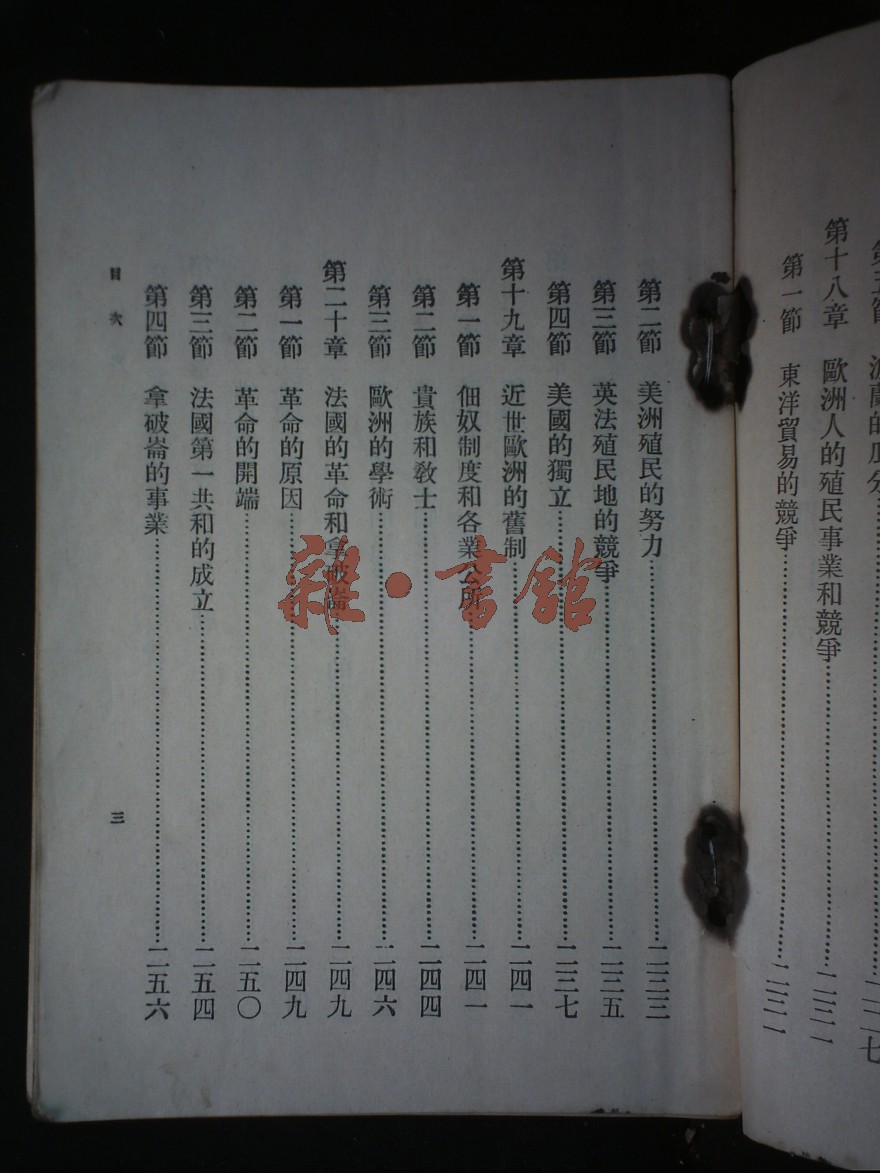 的瓜分
第十八章　歐洲人的殖民事業和競爭……二三一
第一節　東洋貿易的競爭……二三一
第二節　美洲殖民的努力……二三三
第三節　英法殖民地的競爭……二三五
第四節　美國的獨立……二三七
第十九章　近世歐洲的舊制……二四一
第一節　佃奴制度和各業公所……二四一
第二節　貴族和教士……二四四
第三節　歐洲的學術……二四六
第二十章　法國的革命和拿破崙……二四九
第一節　革命的原因……二四九
第二節　革命的開端……二五〇
第三節　法國第一共和的成立……二五四
第四節　拿破崙的事業……二五六
目次
三
雜·書館